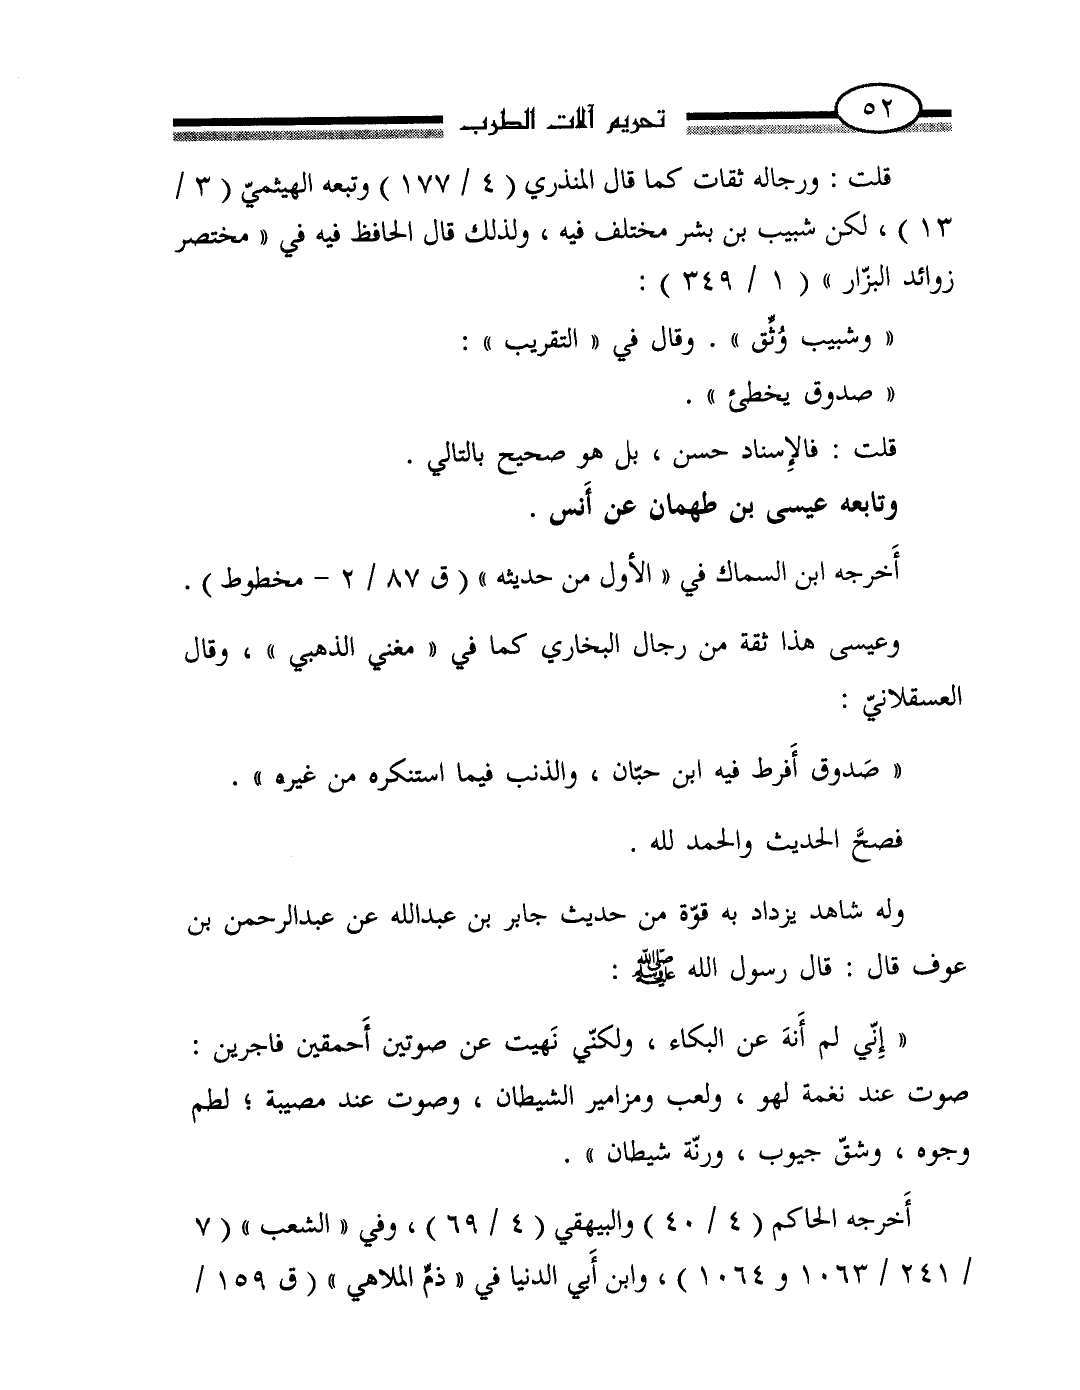 ٥٢
تحريم آلات الطرب
قلت : ورجاله ثقات كما قال المنذري ( ٤ / ١٧٧ ) وتبعه الهيثميّ ( ٣ /
١٣ ) ، لكن شبيب بن بشر مختلف فيه ، ولذلك قال الحافظ فيه في « مختصر
زوائد البزّار » ( ١ / ٣٤٩ ) :
« وشبيب وُثِّق » . وقال في « التقريب » :
« صدوق يخطئ » .
قلت : فالإِسناد حسن ، بل هو صحيح بالتالي .
وتابعه عيسى بن طهمان عن أَنس .
أَخرجه ابن السماك في « الأول من حديثه » ( ق ٨٧ / ٢ – مخطوط ) .
وعيسى هذا ثقة من رجال البخاري كما في « مغني الذهبي » ، وقال
العسقلانيّ :
« صَدوق أَفرط فيه ابن حبّان ، والذنب فيما استنكره من غيره » .
فصحَّ الحديث والحمد لله .
وله شاهد يزداد به قوّة من حديث جابر بن عبدالله عن عبدالرحمن بن
عوف قال : قال رسول الله ﷺ :
« إِنّي لم أَنهَ عن البكاء ، ولكنّي نَهيت عن صوتين أَحمقين فاجرين :
صوت عند نغمة لهو ، ولعب ومزامير الشيطان ، وصوت عند مصيبة ؛ لطم
وجوه ، وشقّ جيوب ، ورنّة شيطان » .
أَخرجه الحاكم ( ٤ / ٤٠ ) والبيهقي ( ٤ / ٦٩ ) ، وفي « الشعب » ( ٧
/ ٢٤١ / ١٠٦٣ و ١٠٦٤ ) ، وابن أَبي الدنيا في « ذمّ الملاهي » ( ق ١٥٩ /